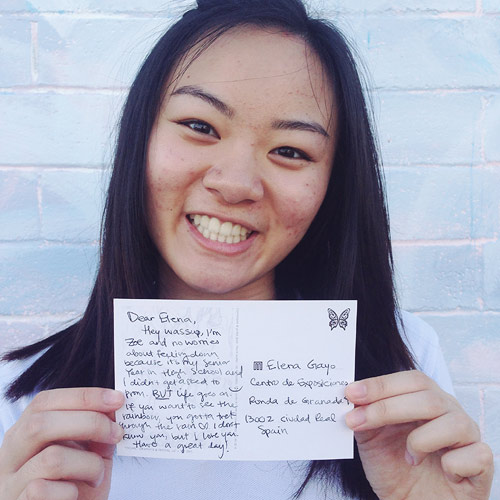 Dear Elena,
Hey wassup, I'm
Zoe and no worries
about feeling down
because it's my Senior
Year in High School and
I didn't get asked to
prom. BUT life goes on.
If you want to see the
rainbow, you gotta trek
through the rain ♡ I don't
know you, but I love you.
Have a great day!
Elena Gayo
Centro de Exposiciones
Ronda de Granada
13002 Ciudad Real
Spain